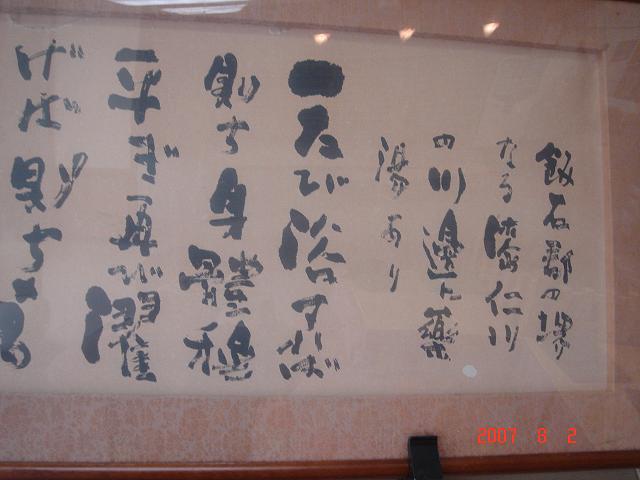 飯石郡の堺
なる漆仁川
の川邊に薬
湯あり
一たび浴すれば
則ち身體穏
平ぎ再び濯
げば則ち
2007 8 2